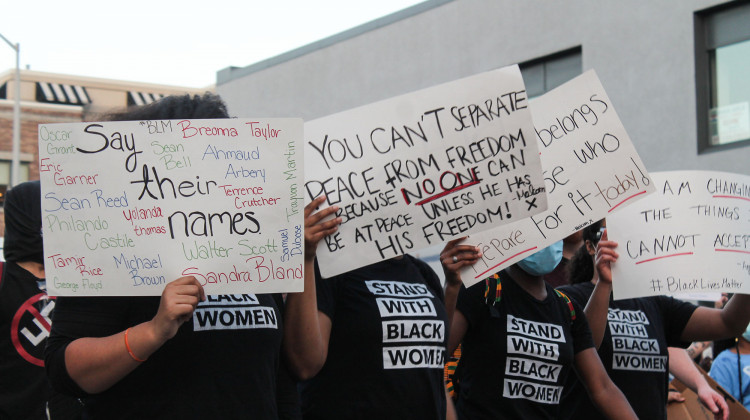 Say
their
names.
#BLM
Oscar
Grant
Eric
Garner
Sean Reed
Philando
Castile
Tamir
Rice
George Floyd
Breonna Taylor
Sean
Bell
Ahmaud
Arbery
Terrence
Crutcher
Yolanda
thomas
Walter Scott
Michael
Brown
Sandra Bland
Trayvon Martin
Samuel
Dubose
YOU CAN'T SEPARATE
PEACE FROM FREEDOM
BECAUSE NO ONE CAN
BE AT PEACE UNLESS HE HAS
HIS FREEDOM!
-Malcolm
X
belongs
se who
epare for it today!
AM CHANGING
THE THINGS
CANNOT ACCEPT
#BlackLivesMatter
BLACK
WOMEN
STAND
WITH
BLACK
WOMEN
STAND
WITH
BLACK
WOMEN
STAND
WITH
BLACK
WOMEN